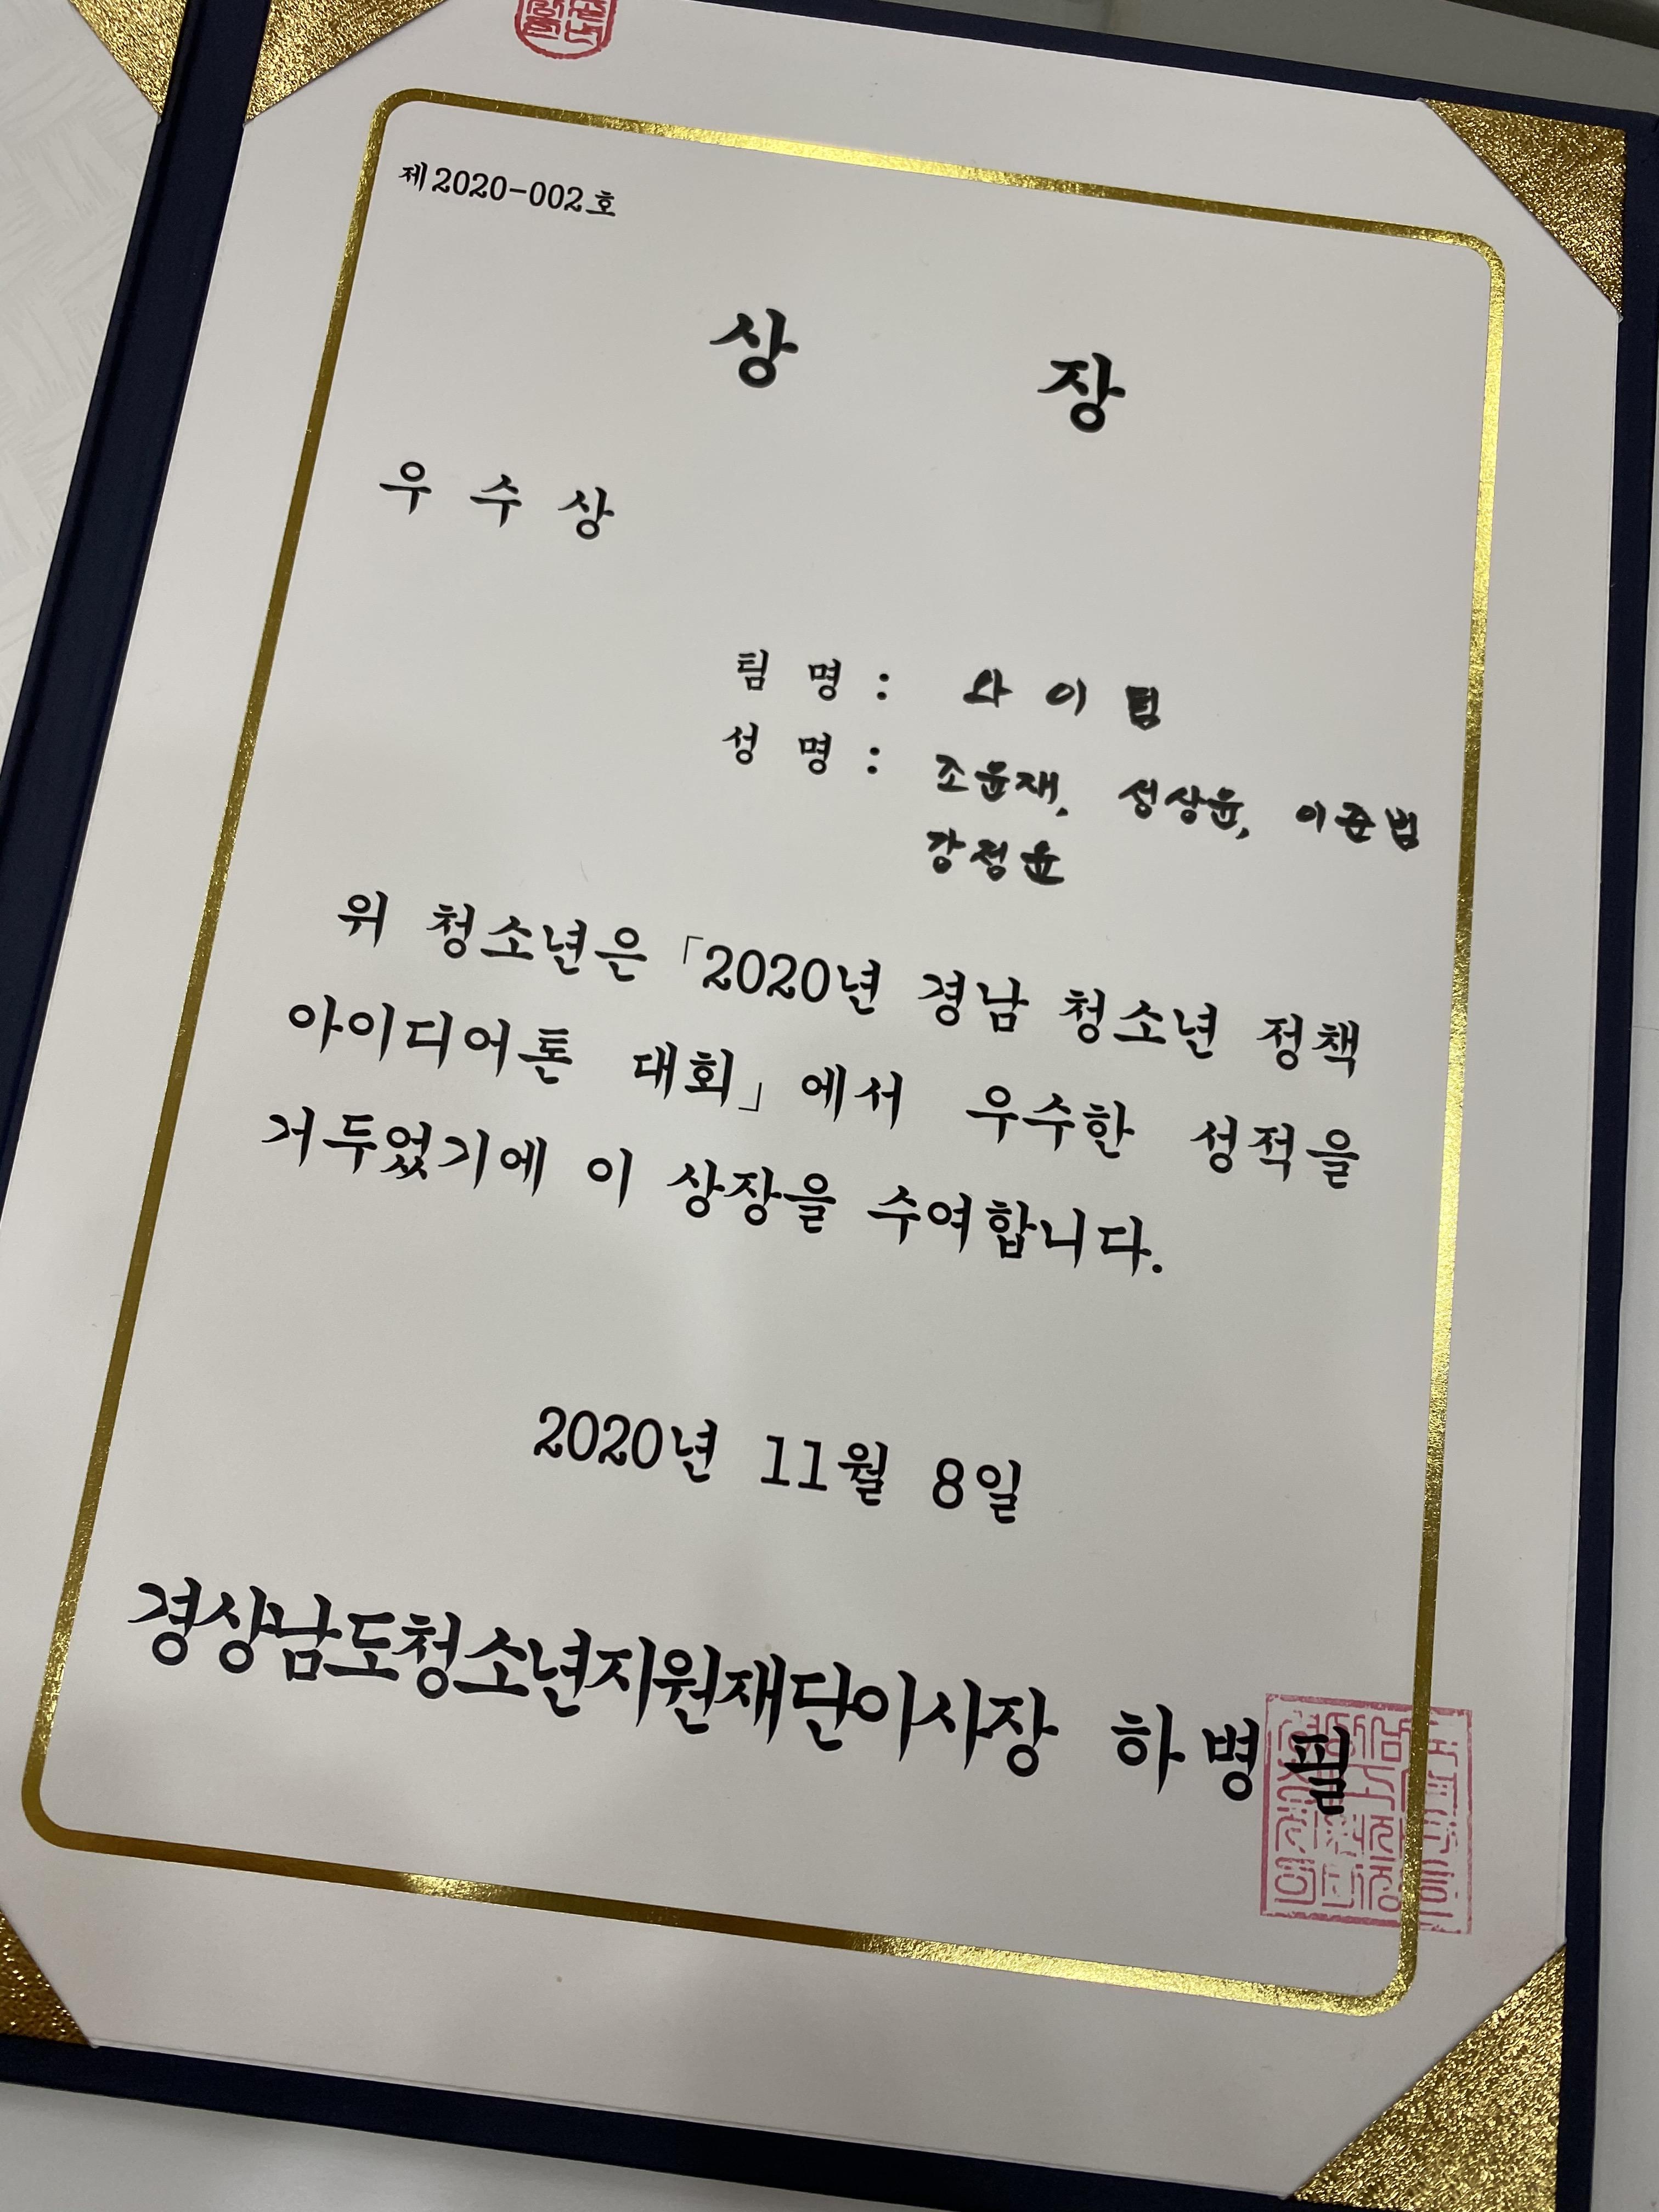 제2020-002호
상 장
우 수 상
팀 명 : 와 이 텀
성 명 : 조윤재, 성상윤, 이준범
강정윤
위 청소년은 「2020년 경남 청소년 정책
아이디어톤 대회」에서 우수한 성적을
거두었기에 이 상장을 수여합니다.
2020년 11월 8일
경상남도청소년지원재단이사장 하병필